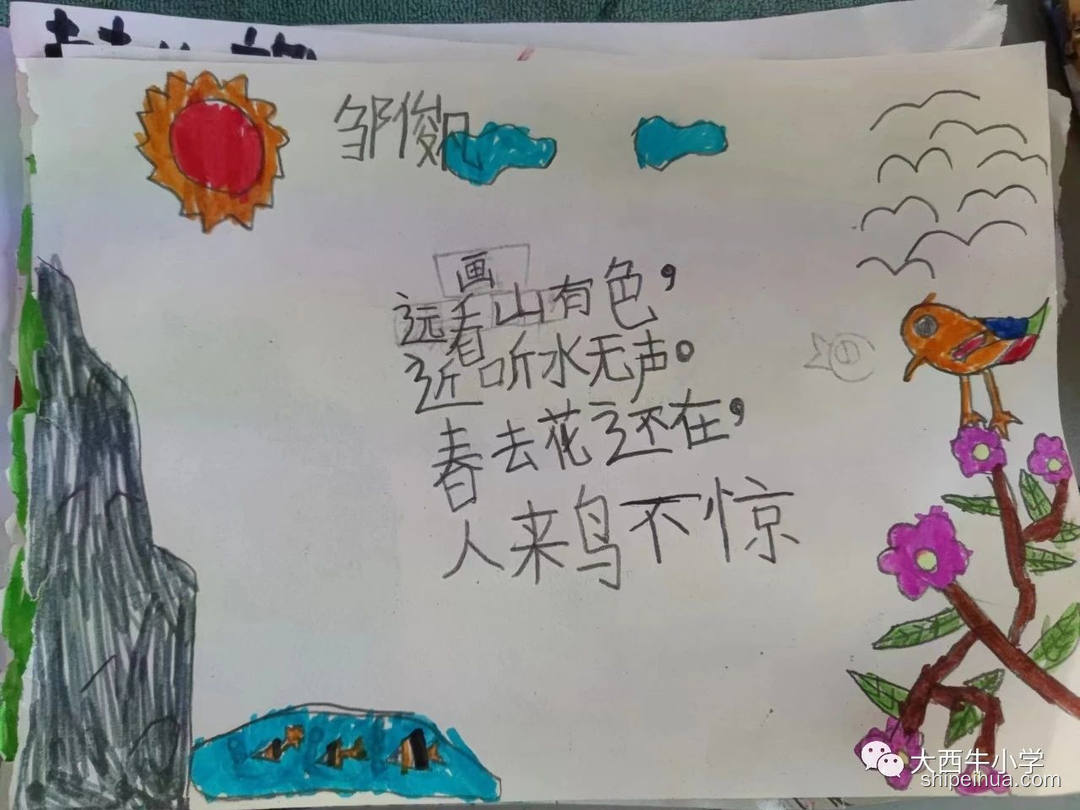 邹俊凡
画
远看山有色，
近听水无声。
春去花还在，
人来鸟不惊
大西牛小学
shipeihua.com